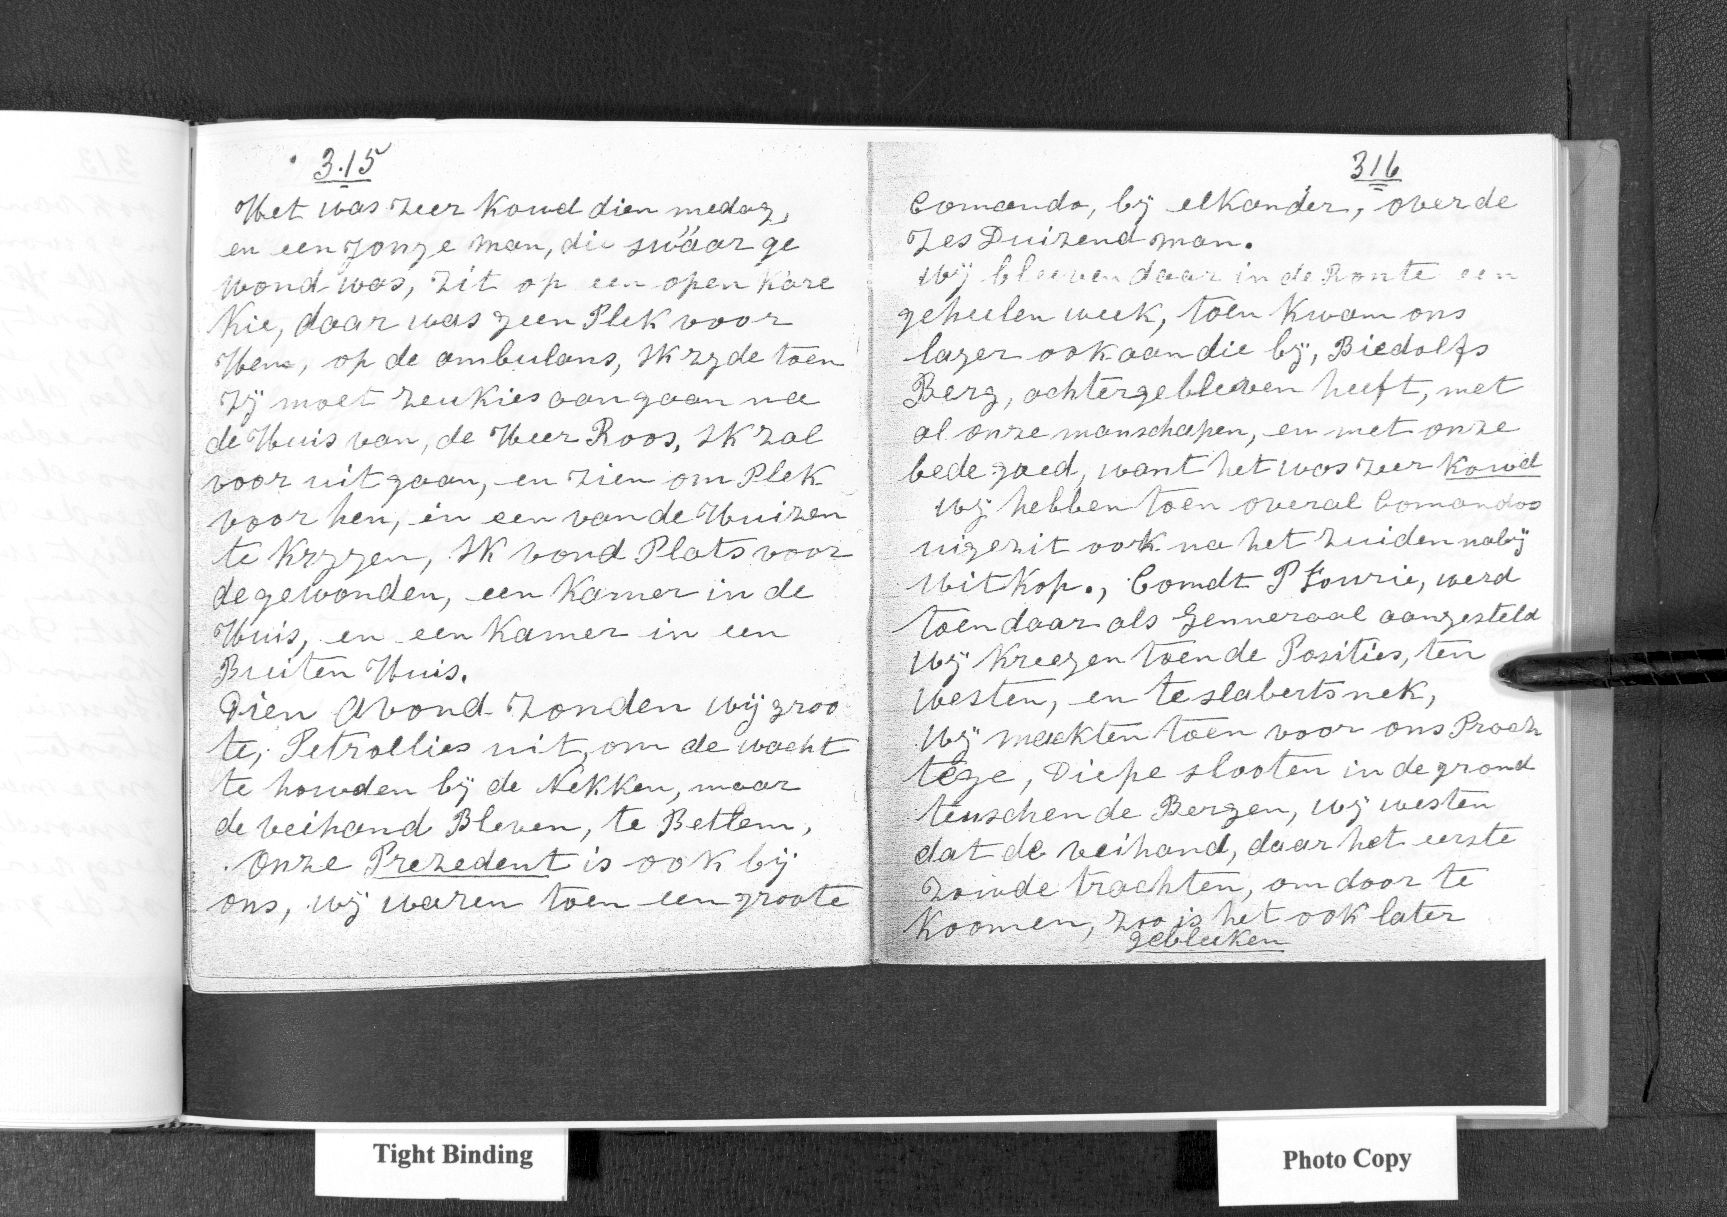 3.15
Het was zeer Kowd dien medag,
en een Jonge man, die swáar ge
wond was, zit op een open Kare
Kie, daar was geen Plek voor
Hem, op de ambulans, Ik zyde toen
zÿ moet zeukies aan gaan na
de Huis van, de Heer Roos, Ik zal
voor uit gaan, en zien om Plek
voor hen, in een van de Huizen
te Krygen, Ik vond Plats voor
de gewonden, een Kamer in de
Huis, en een Kamer in een
Buiten Huis.
Dien Avond zonden wÿ groo
te, Petrollies uit, om de wacht
te howden bÿ de Nekken, maar
de veihand Bleven, te Betlem,
Onze Prezedent is ook bÿ
ons, wÿ waren toen een groote
316
Comando, bÿ elkander, over de
Zes Duizend man.
wÿ bleeven daar in de Ronte een
geheelen week, toen Kwam ons
lager ook aan die bÿ, Biedolfs
Berg, achtergebleven heeft, met
al onze manschapen, en met onze
bede goed, want het was zeer Kowd
wÿ hebben toen overal Comandoos
uigezit ook na het zuiden nabÿ
wit Kop., Comdt P Fourie, werd
toen daar als Genneraal aangesteld
wÿ Kreegen toen de Posities, ten
westen, en te slabertsnek,
wÿ maekten toen voor ons
tége, Diepe slooten in de grond
teuschen de Bergen, wÿ westen
dat de veihand, daar het eerste
zowde trachten, om door te
Koomen, zoo is het ook later
gebleeken
Tight Binding
Photo Copy